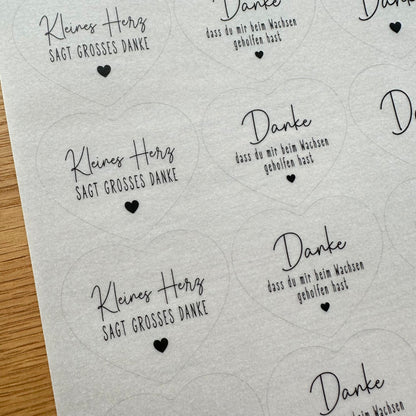 Kleines Herz
SAGT GROSSES DANKE
Danke
dass du mir beim Wachsen
geholfen hast
Kleines Herz
SAGT GROSSES DANKE
Danke
dass du mir beim Wachsen
geholfen hast
Kleines Herz
SAGT GROSSES DANKE
Danke
dass du mir beim Wachsen
geholfen hast
Danke
dass du mir beim Wachsen
geholfen hast